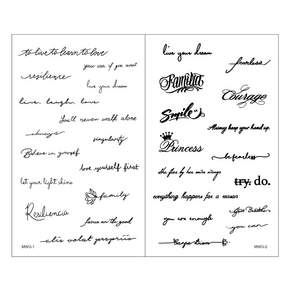 to live to learn to love
your can if you want
resilience
live your dream
live. laugh. love
You'll never walk alone
always
singularity
Believe in yourself
love yourself first
let your light shine
family
Resiliencia
focus on the good
alis volat propriis
MWG-1
live your dream
fearless
Familia
Courage
Smile
Always keep your head up.
Princess
be fearless
she flies by her own wings
try. do.
everything happens for a reason
you are enough
you can
Carpe diem
MWG-2